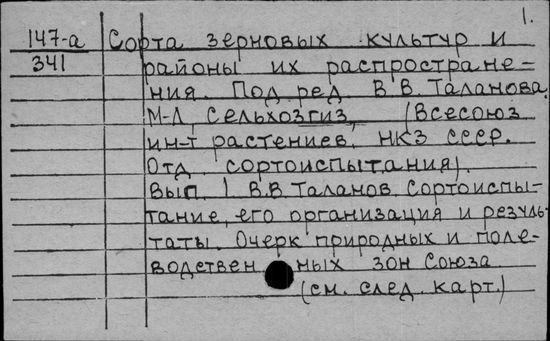 1.
147-а Сорта зерновых культур и
341 районы их распростране=
ния. Под ред В.В. Таланова.
М-Л, Сельхозгиз, (Всесоюз
ин-т растениев, НКЗ СССР.
Отд сортоиспытания).
Вып. 1 В.В. Таланов. Сортоиспы-
тание, его организация и резуль-
таты. Очерк природных и поле-
водствен ных зон Союза
(см. след. карт.)